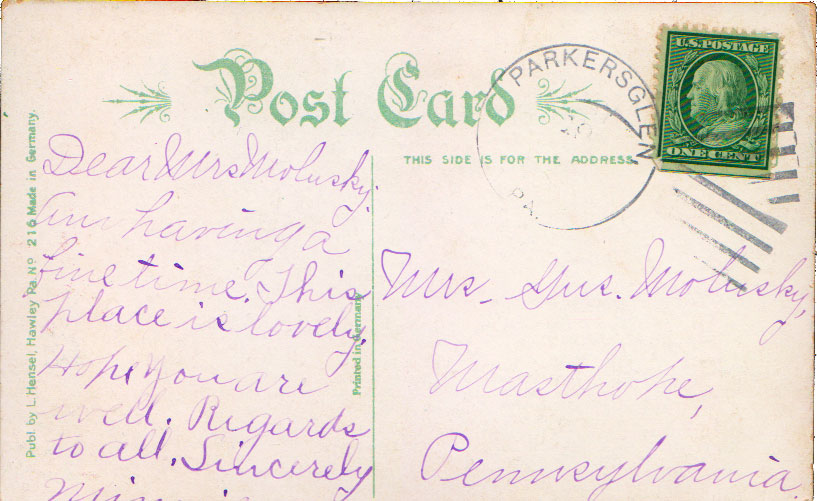 Post Card
THIS SIDE IS FOR THE ADDRESS
PARKERSGLEN
PA.
U.S. POSTAGE
ONE CENT
Publ. by L. Hensel, Hawley Pa. No 216 Made in Germany.
Printed in Germany
Dear Mrs Molusky.
Am having a
fine time. This
place is lovely.
Hope you are
well. Regards
to all. Sincerely
Mrs. Gus. Molusky,
Masthope,
Pennsylvania.